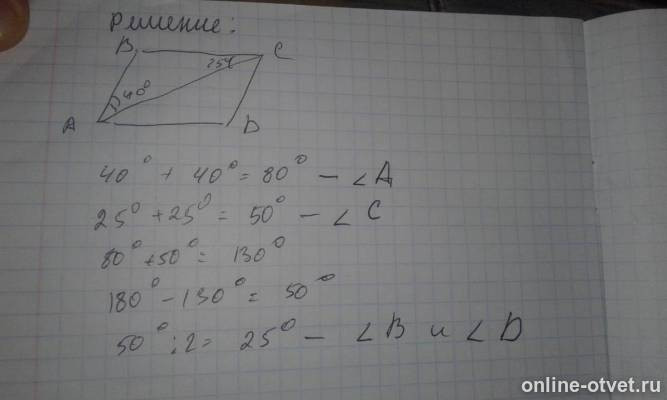 Решение:
B C
25°
40°
A D
40° + 40° = 80° – ∠A
25° + 25° = 50° – ∠C
80° + 50° = 130°
180° – 130° = 50°
50° : 2 = 25° – ∠B и ∠D
online-otvet.ru